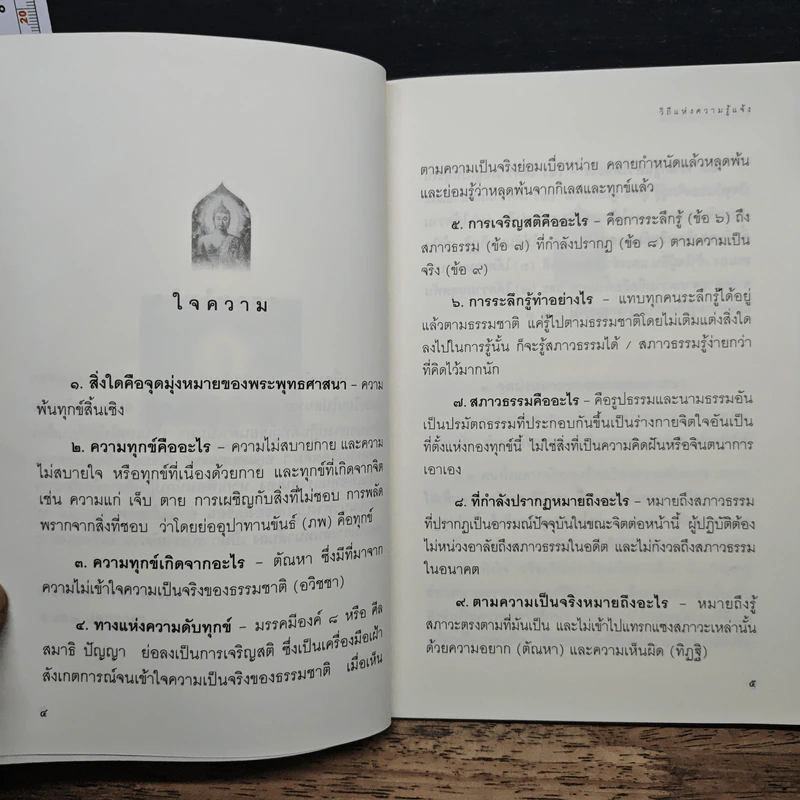 20
ใจความ
๑. สิ่งใดคือจุดมุ่งหมายของพระพุทธศาสนา – ความ
พ้นทุกข์สิ้นเชิง
๒. ความทุกข์คืออะไร – ความไม่สบายกาย และความ
ไม่สบายใจ หรือทุกข์ที่เนื่องด้วยกาย และทุกข์ที่เกิดจากจิต
เช่น ความแก่ เจ็บ ตาย การเผชิญกับสิ่งที่ไม่ชอบ การพลัด
พรากจากสิ่งที่ชอบ ว่าโดยย่ออุปาทานขันธ์ (ภพ) คือทุกข์
๓. ความทุกข์เกิดจากอะไร – ตัณหา ซึ่งมีที่มาจาก
ความไม่เข้าใจความเป็นจริงของธรรมชาติ (อวิชชา)
๔. ทางแห่งความดับทุกข์ – มรรคมีองค์ ๘ หรือ ศีล
สมาธิ ปัญญา ย่อลงเป็นการเจริญสติ ซึ่งเป็นเครื่องมือเฝ้า
สังเกตการณ์จนเข้าใจความเป็นจริงของธรรมชาติ เมื่อเห็น
๔
วิถีแห่งความรู้แจ้ง
ตามความเป็นจริงย่อมเบื่อหน่าย คลายกำหนัดแล้วหลุดพ้น
และย่อมรู้ว่าหลุดพ้นจากกิเลสและทุกข์แล้ว
๕. การเจริญสติคืออะไร – คือการระลึกรู้ (ข้อ ๖) ถึง
สภาวธรรม (ข้อ ๗) ที่กำลังปรากฏ (ข้อ ๘) ตามความเป็น
จริง (ข้อ ๙)
๖. การระลึกรู้ทำอย่างไร – แทบทุกคนระลึกรู้ได้อยู่
แล้วตามธรรมชาติ แค่รู้ไปตามธรรมชาติโดยไม่เติมแต่งสิ่งใด
ลงไปในการรู้นั้น ก็จะรู้สภาวธรรมได้ / สภาวธรรมรู้ง่ายกว่า
ที่คิดไว้มากนัก
๗. สภาวธรรมคืออะไร – คือรูปธรรมและนามธรรมอัน
เป็นปรมัตถธรรมที่ประกอบกันขึ้นเป็นร่างกายจิตใจอันเป็น
ที่ตั้งแห่งกองทุกข์นี้ ไม่ใช่สิ่งที่เป็นความคิดฝันหรือจินตนาการ
เอาเอง
๘. ที่กำลังปรากฏหมายถึงอะไร – หมายถึงสภาวธรรม
ที่ปรากฏเป็นอารมณ์ปัจจุบันในขณะจิตต่อหน้านี้ ผู้ปฏิบัติต้อง
ไม่หน่วงอาลัยถึงสภาวธรรมในอดีต และไม่กังวลถึงสภาวธรรม
ในอนาคต
๙. ตามความเป็นจริงหมายถึงอะไร – หมายถึงรู้
สภาวะตรงตามที่มันเป็น และไม่เข้าไปแทรกแซงสภาวะเหล่านั้น
ด้วยความอยาก (ตัณหา) และความเห็นผิด (ทิฏฐิ)
๕